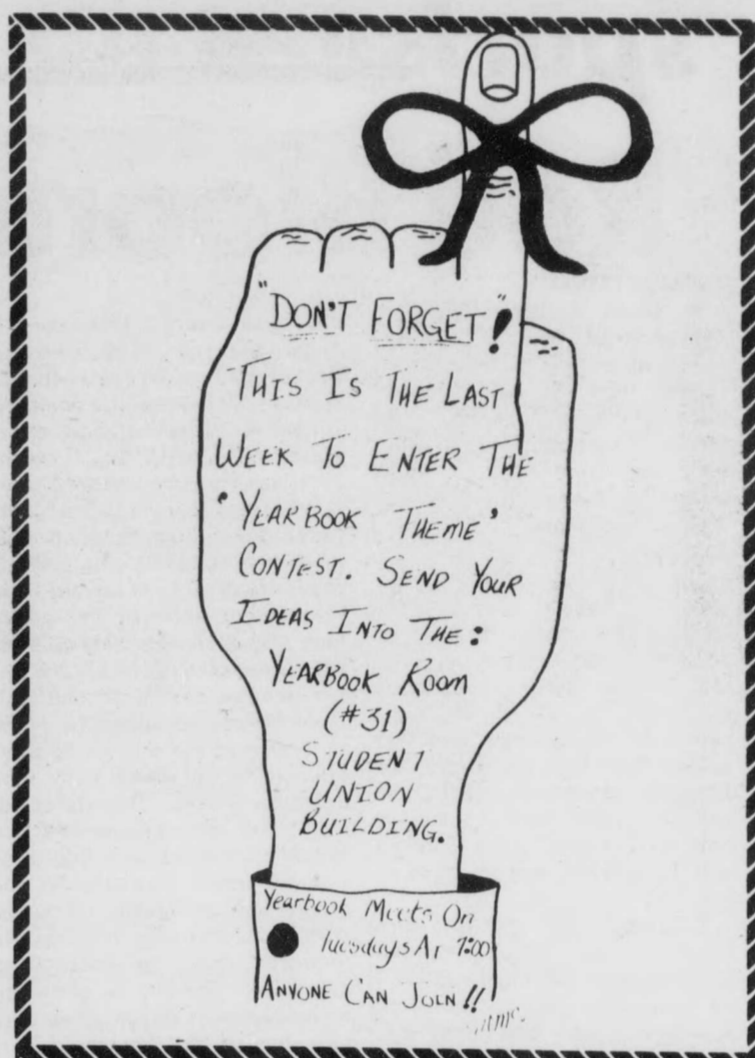 "DON'T FORGET"!
THIS IS THE LAST
WEEK TO ENTER THE
'YEARBOOK THEME'
CONTEST. SEND YOUR
IDEAS INTO THE:
YEARBOOK ROOM
(#31)
STUDENT
UNION
BUILDING.
Yearbook Meets On
Tuesdays At 7:00
ANYONE CAN JOIN!!